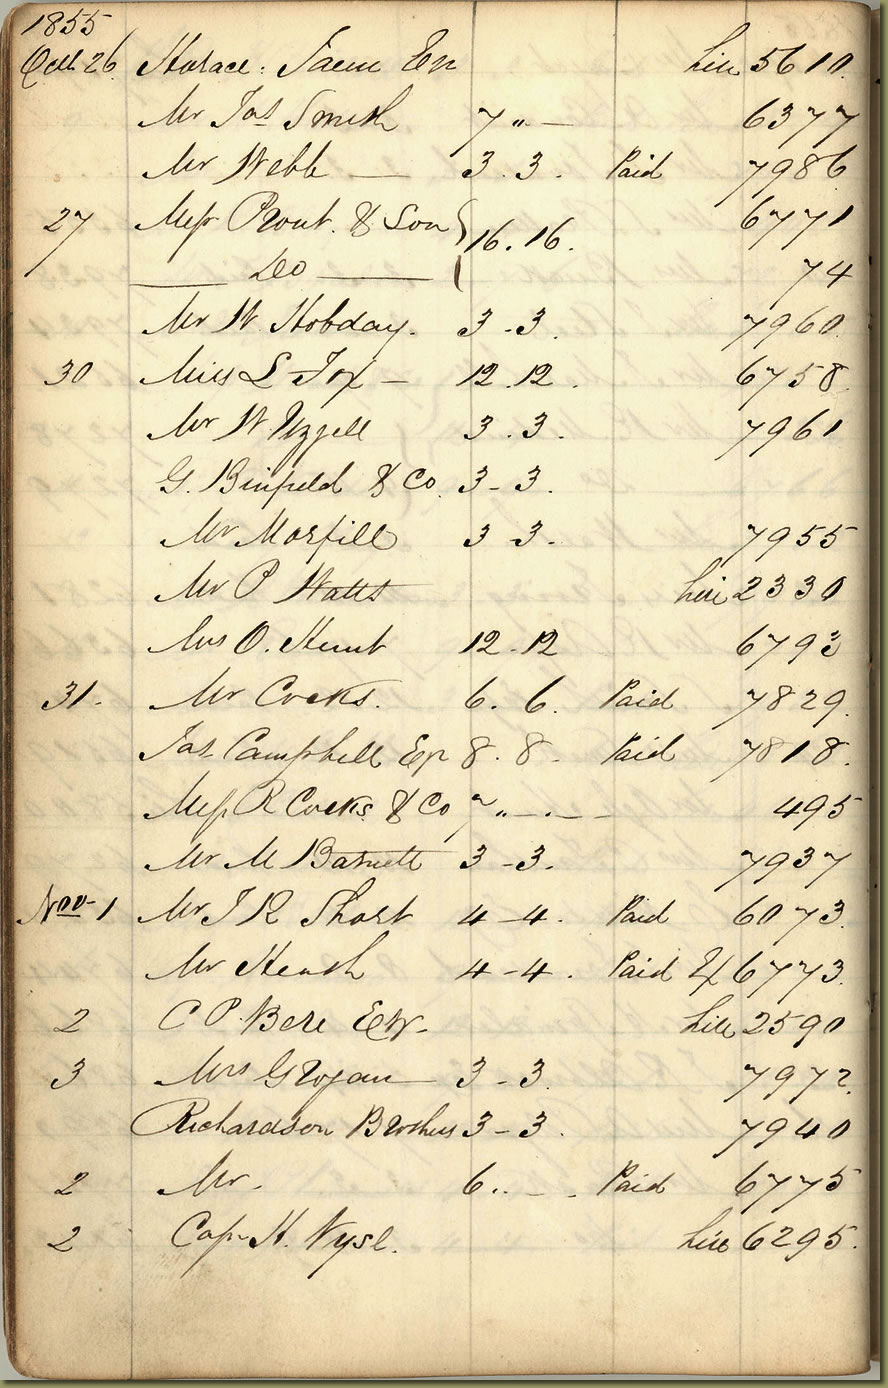 1855
Oct. 26 Horace Esq 5610
Mr Jas Smith 7 " — 6377
Mr Webb — 3 . 3 . Paid 7986
27 Mess Prout & Son 16 . 16 . 6771
— Do — 74
Mr W Hobday. 3 - 3 7960
30 Miss L Fox — 12 . 12 . 6758
Mr W Uzzell 3 . 3 . 7961
G. Binfield & Co 3 - 3 .
Mr Morfill 3 3 . 7955
Mr P Watts 2330
Mrs O. Hunt 12 . 12 679
31. Mr Cocks. 6 . 6 . Paid 7829.
Jas Campbell Esq 8 . 8 . Paid 7818.
Mess R Cocks & Co " — . — 495
Mr M Barnett 3 - 3 . 7937
Nov 1 Mr J R Short 4 - 4 . Paid 6073.
Mr 4 - 4 . Paid 6773.
2 C P. Bere 2590
3 Mrs Grogan 3 - 3 7972.
Richardson Brothers 3 - 3 . 7940
2 Mr. 6 . . — . Paid 6775
2 Cap H. 6295.